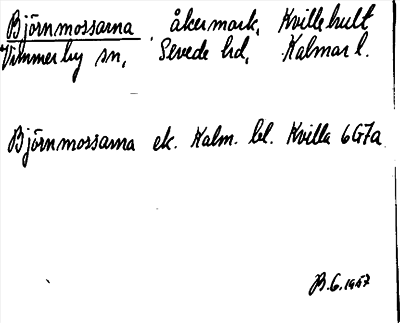 Björnmossarna, åkermark, Kvillehult
Vimmerby sn, Sevede hd, Kalmar l.
Björnmossarna ek. Kalm. bl. Kvilla 6G7a
B.G. 1947